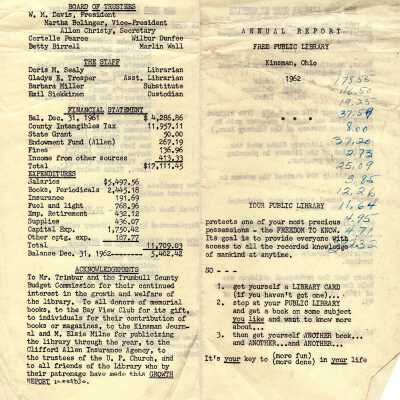 BOARD OF TRUSTEES
W. M. Davis, President
Martha Bolinger, Vice-President
Allen Christy, Secretary
Cortelle Pearce Wilbur Dunfee
Betty Birrell Marlin Wall
THE STAFF
Doris M. Sealy Librarian
Gladys E. Trosper Asst. Librarian
Barbara Miller Substitute
Emil Siekkinen Custodian
FINANCIAL STATEMENT
Bal. Dec. 31, 1961 $ 4,286.86
County Intangibles Tax 11,957.11
State Grant 50.00
Endowment Fund (Allen) 267.19
Fines 136.96
Income from other sources 413.33
Total $17,111.45
EXPENDITURES
Salaries $5,497.56
Books, Periodicals 2,445.18
Insurance 191.69
Fuel and light 768.96
Emp. Retirement 432.12
Supplies 436.07
Capital Exp. 1,750.42
Other optg. exp. 187.77
Total 11,709.03
Balance Dec. 31, 1962-------- 5,402.42
ACKNOWLEDGEMENTS
To Mr. Trimbur and the Trumbull County
Budget Commission for their continued
interest in the growth and welfare of
the library. To all donors of memorial
books, to the Bay View Club for its gift,
to individuals for their contribution of
books or magazines, to the Kinsman Jour-
nal and M, Elsie Milne for publicizing
the library through the year, to the
Clifford Allen Insurance Agency, to
the trustees of the U. P. Church, and to
all friends of the library who by
their patronage have made this GROWTH
REPORT possible.
ANNUAL REPORT
FREE PUBLIC LIBRARY
Kinsman, Ohio
1962
* * *
175.55
16.50
19.25
37.54
8.00
37.20
2.73
25.09
2.85
12.26
11.64
4.95
4.71
YOUR PUBLIC LIBRARY
protects one of your most precious
possessions - the FREEDOM TO KNOW.
Its goal is to provide everyone with
access to all the recorded knowledge
of mankind at anytime.
SO - - -
1. get yourself a LIBRARY CARD
(if you haven't got one)...
2. stop at your PUBLIC LIBRARY
and get a book on some subject
you like and want to know more
about...
3. then get yourself ANOTHER book...
and ANOTHER...and ANOTHER...
It's your key to (more fun) (more done) in your life